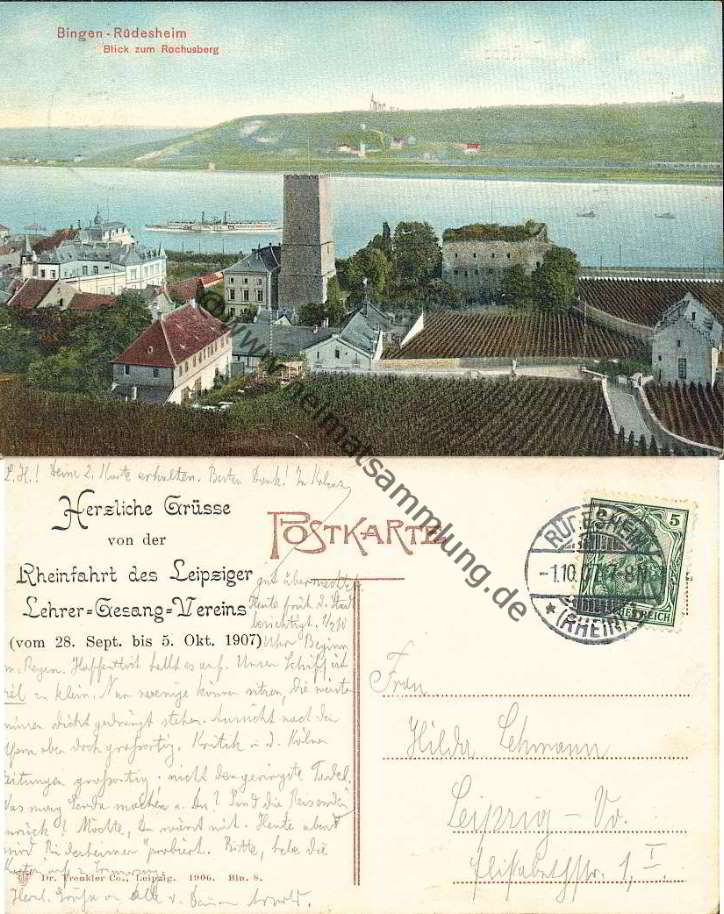 Bingen - Rüdesheim
Blick zum Rochusberg
www.heimatsammlung.de
L. H.! Deine 2. Karte erhalten. Besten Dank! In
Herzliche Grüsse
von der
Rheinfahrt des Leipziger
Lehrer=Gesang=Vereins
(vom 28. Sept. bis 5. Okt. 1907)
POSTKARTE
RÜDESHEIM
-1.10.07.7-8N
* (RHEIN)
5
gut übernachtet
Heute früh d. Stadt
besichtigt.
Uhr Beginn
Regen. Hoffentlich hellt es auf. Unser Schiff ist
viel zu klein. Nur wenige können sitzen, die meisten
müssen dicht gedrängt stehen. Aussicht nach den
aber doch großartig. Kritik i. d. Kölner
Zeitungen großartig. nicht den geringsten Tadel.
Was mag
die Reisenden
zurück? Möchte, Du wärst mit. Heute abend
wird "Rüdesheimer" probiert. Bitte, hebe die
Karten auf
Herzl. Grüße an alle v.
Frau
Hilda Lehmann
Leipzig - Vo.
Elisabethstr. 1, I.
Dr. Trenkler Co., Leipzig. 1906. Bin. 8.